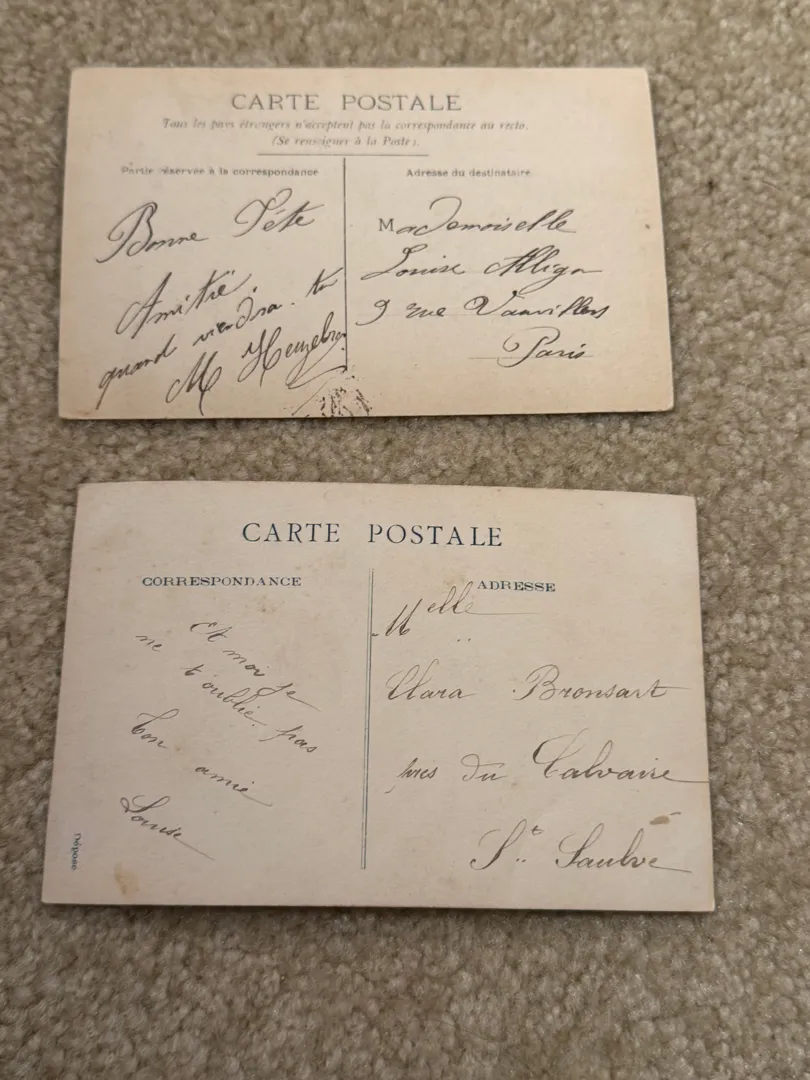 CARTE POSTALE
Tous les pays étrangers n'acceptent pas la correspondance au recto.
(Se renseigner à la Poste).
Partie réservée à la correspondance
Bonne Fête
Amitié.
quand viendra. tu
M
Adresse du destinataire
Mademoiselle
Louise
9 rue Vauvilliers
Paris
CARTE POSTALE
CORRESPONDANCE
Et moi je
ne t'oublie pas
Ton amie
Louise
Déposé
ADRESSE
Melle
Clara Bronsart
près du Calvaire
St. Saulve